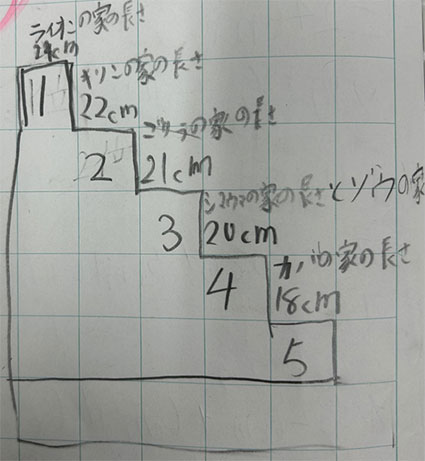 ライオンの家の長さ
24cm
1
キリンの家の長さ
22cm
2
ゴリラの家の長さ
21cm
3
シマウマの家の長さとゾウの家
20cm
4
の家の長さ
18cm
5